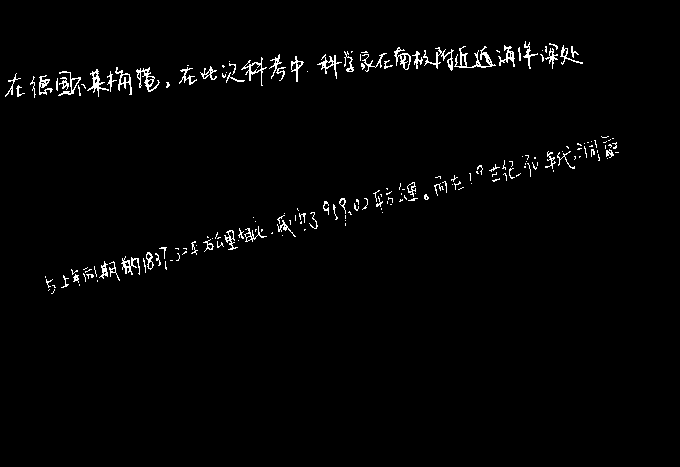 在德国不莱梅港,在此次科考中 科学家在南极附近近海洋深处
与上年同期的1837.32平方公里相比,减少了959.02平方公里。而在19世纪70年代,洞庭